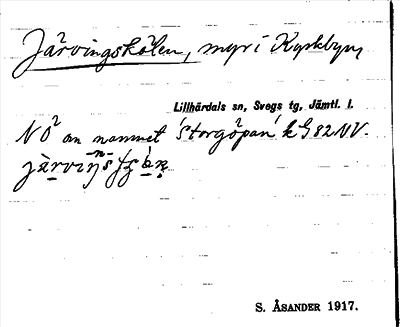 Järvingskölen, myr i Kyrkbyn,
Lillhärdals sn, Svegs tg, Jämtl. l.
NÖ om namnet 'Storgöpan' k G 82 NV.
S. ÅSANDER 1917.